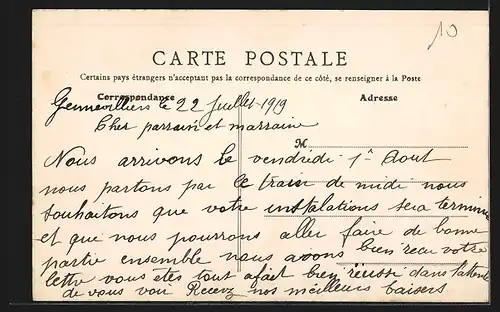 10
CARTE POSTALE
Certains pays étrangers n'acceptant pas la correspondance de ce côté, se renseigner à la Poste
Correspondance
Adresse
Gennevilliers le 22 Juillet 1919
Cher parrain et marraine
M
Nous arrivons le vendredi 1er Aout
nous partons par le train de midi nous
souhaitons que votre instalations sera terminée
et que nous pourrons aller faire de bonne
partie ensemble nous avons bien recu votre
lettre vous etes tout a fait bien réussi dans l'attente
de vous voir Recevez nos meilleurs baisers